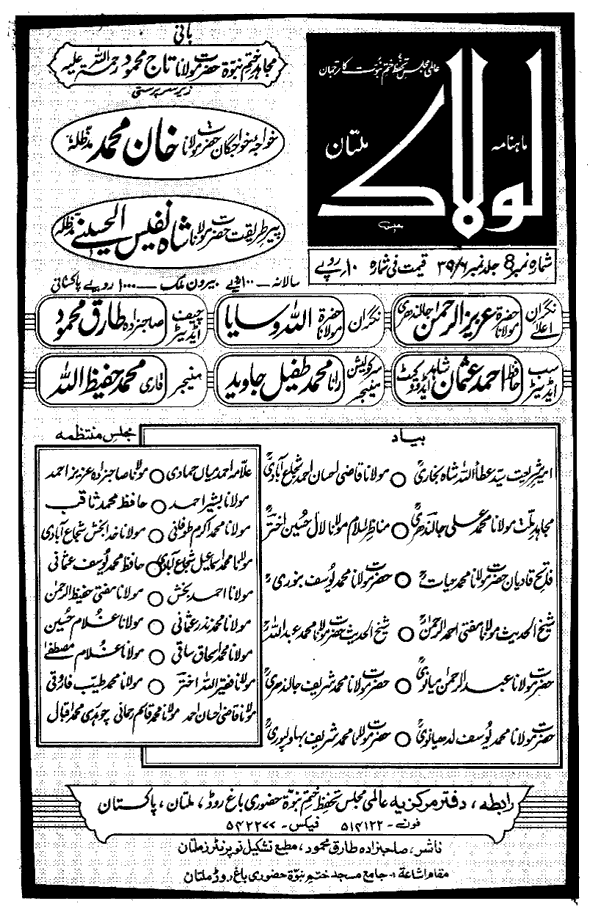 عالمی مجلس تحفظ ختم نبوت کا ترجمان
ماہنامہ
لولاک
ملتان
شمارہ نمبر 8 جلد نمبر ۳۹/۶ قیمت فی شمارہ ۱۰ روپے
بانی
مجاہد ختم نبوۃ حضرت مولانا تاج محمود رحمۃ اللہ علیہ
زیر سرپرستی
خواجۂ خواجگان حضرت مولانا خان محمد مدظلہٗ
پیر طریقت حضرت مولانا شاہ نفیس الحسینی مدظلہ
سالانہ ۱۰۰ روپے بیرون ملک ۱۰۰۰ روپے پاکستانی
نگران اعلٰے حضرۃ مولانا عزیز الرحمن جالندھری
نگران حضرۃ مولانا اللہ وسایا
چیف ایڈیٹر صاحبزادہ طارق محمود
سب ایڈیٹر حافظ احمد عثمان شاہد ایڈووکیٹ
سرکولیشن منیجر رانا محمد طفیل جاوید
منیجر قاری محمد حفیظ اللہ
بیاد
امیر شریعت سید عطا اللہ شاہ بخاریؒ ○ مولانا قاضی احسان احمد شجاع آبادیؒ
مجاہد ملت مولانا محمد علی جالندھریؒ ○ مناظر اسلام مولانا لال حسین اخترؒ
فاتح قادیان حضرت مولانا محمد حیاتؒ ○ حضرت مولانا محمد یوسف بنوریؒ
شیخ الحدیث مولانا مفتی احمد الرحمنؒ ○ شیخ الحدیث حضرت مولانا محمد عبداللہؒ
حضرت مولانا عبد الرحمن میانویؒ ○ حضرت مولانا محمد شریف جالندھریؒ
حضرت مولانا محمد یوسف لدھیانویؒ ○ حضرت مولانا محمد شریف بہاولپوریؒ
مجلس منتظمہ
علامہ احمد میاں حمادی ○ مولانا صاحبزادہ عزیز احمد
مولانا بشیر احمد ○ حافظ محمد ثاقب
مولانا محمد اکرم طوفانی ○ مولانا خدا بخش شجاع آبادی
مولانا محمد اسماعیل شجاع آبادی ○ حافظ محمد یوسف عثمانی
مولانا احمد بخش ○ مولانا مفتی حفیظ الرحمن
مولانا محمد نذر عثمانی ○ مولانا غلام حسین
مولانا محمد اسحاق ساقی ○ مولانا غلام مصطفےٰ
مولانا فقیر اللہ اختر ○ مولانا محمد طیب فاروقی
مولانا قاضی احسان احمد مولانا محمد قاسم رحمانی چوہدری محمد اقبال
رابطہ ، دفتر مرکزیہ عالمی مجلس تحفظ ختم نبوۃ حضوری باغ روڈ ، ملتان ، پاکستان
فون ۵۱۴۱۲۲ فیکس ۵۴۲۲۷۷
ناشر، صاحبزادہ طارق محمود، مطبع تشکیل نو پرنٹرز ملتان
مقام اشاعۃ: جامع مسجد ختم نبوۃ حضوری باغ روڈ ملتان